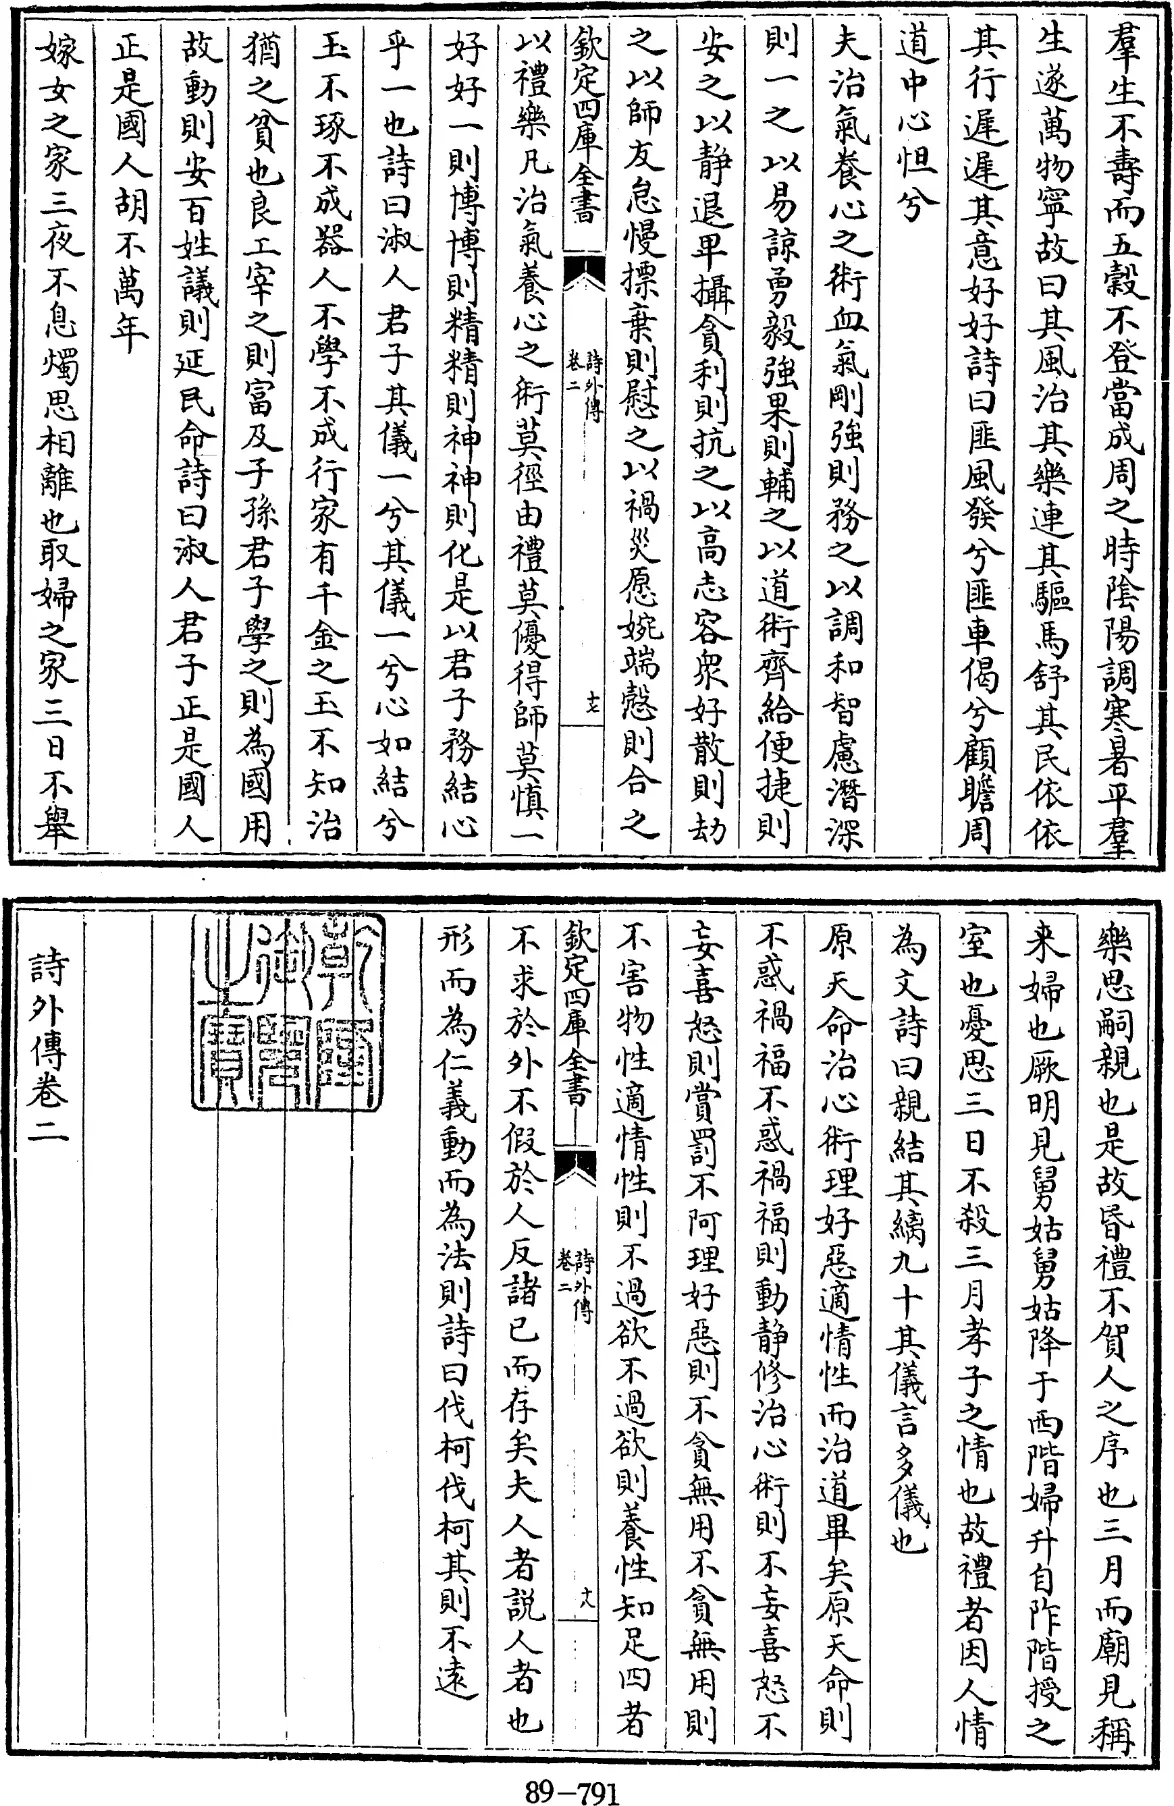 羣生不壽而五穀不登當成周之時陰陽調寒暑平羣
生遂萬物寧故曰其風治其樂連其驅馬舒其民依依
其行遲遲其意好好詩曰匪風發兮匪車偈兮顧瞻周
道中心怛兮
夫治氣養心之術血氣剛強則務之以調和智慮潛深
則一之以易諒勇毅強果則輔之以道術齊給便捷則
安之以靜退卑攝貪利則抗之以高志容衆好散則劫
之以師友怠慢摽棄則慰之以禍災愿婉端慤則合之
欽定四庫全書
詩外傳
卷二
十七
以禮樂凡治氣養心之術莫徑由禮莫優得師莫慎一
好好一則博博則精精則神神則化是以君子務結心
乎一也詩曰淑人君子其儀一兮其儀一兮心如結兮
玉不琢不成器人不學不成行家有千金之玉不知治
猶之貧也良工宰之則富及子孫君子學之則為國用
故動則安百姓議則延民命詩曰淑人君子正是國人
正是國人胡不萬年
嫁女之家三夜不息燭思相離也取婦之家三日不舉
樂思嗣親也是故昏禮不賀人之序也三月而廟見稱
来婦也厥明見舅姑舅姑降于西階婦升自阼階授之
室也憂思三日不殺三月孝子之情也故禮者因人情
為文詩曰親結其縭九十其儀言多儀也
原天命治心術理好惡適情性而治道畢矣原天命則
不惑禍福不惑禍福則動靜修治心術則不妄喜怒不
妄喜怒則賞罰不阿理好惡則不貪無用不貪無用則
不害物性適情性則不過欲不過欲則養性知足四者
欽定四庫全書
詩外傳
卷二
十八
不求於外不假於人反諸己而存矣夫人者說人者也
形而為仁義動而為法則詩曰伐柯伐柯其則不遠
乾隆
御覽
之寶
詩外傳卷二
89-791